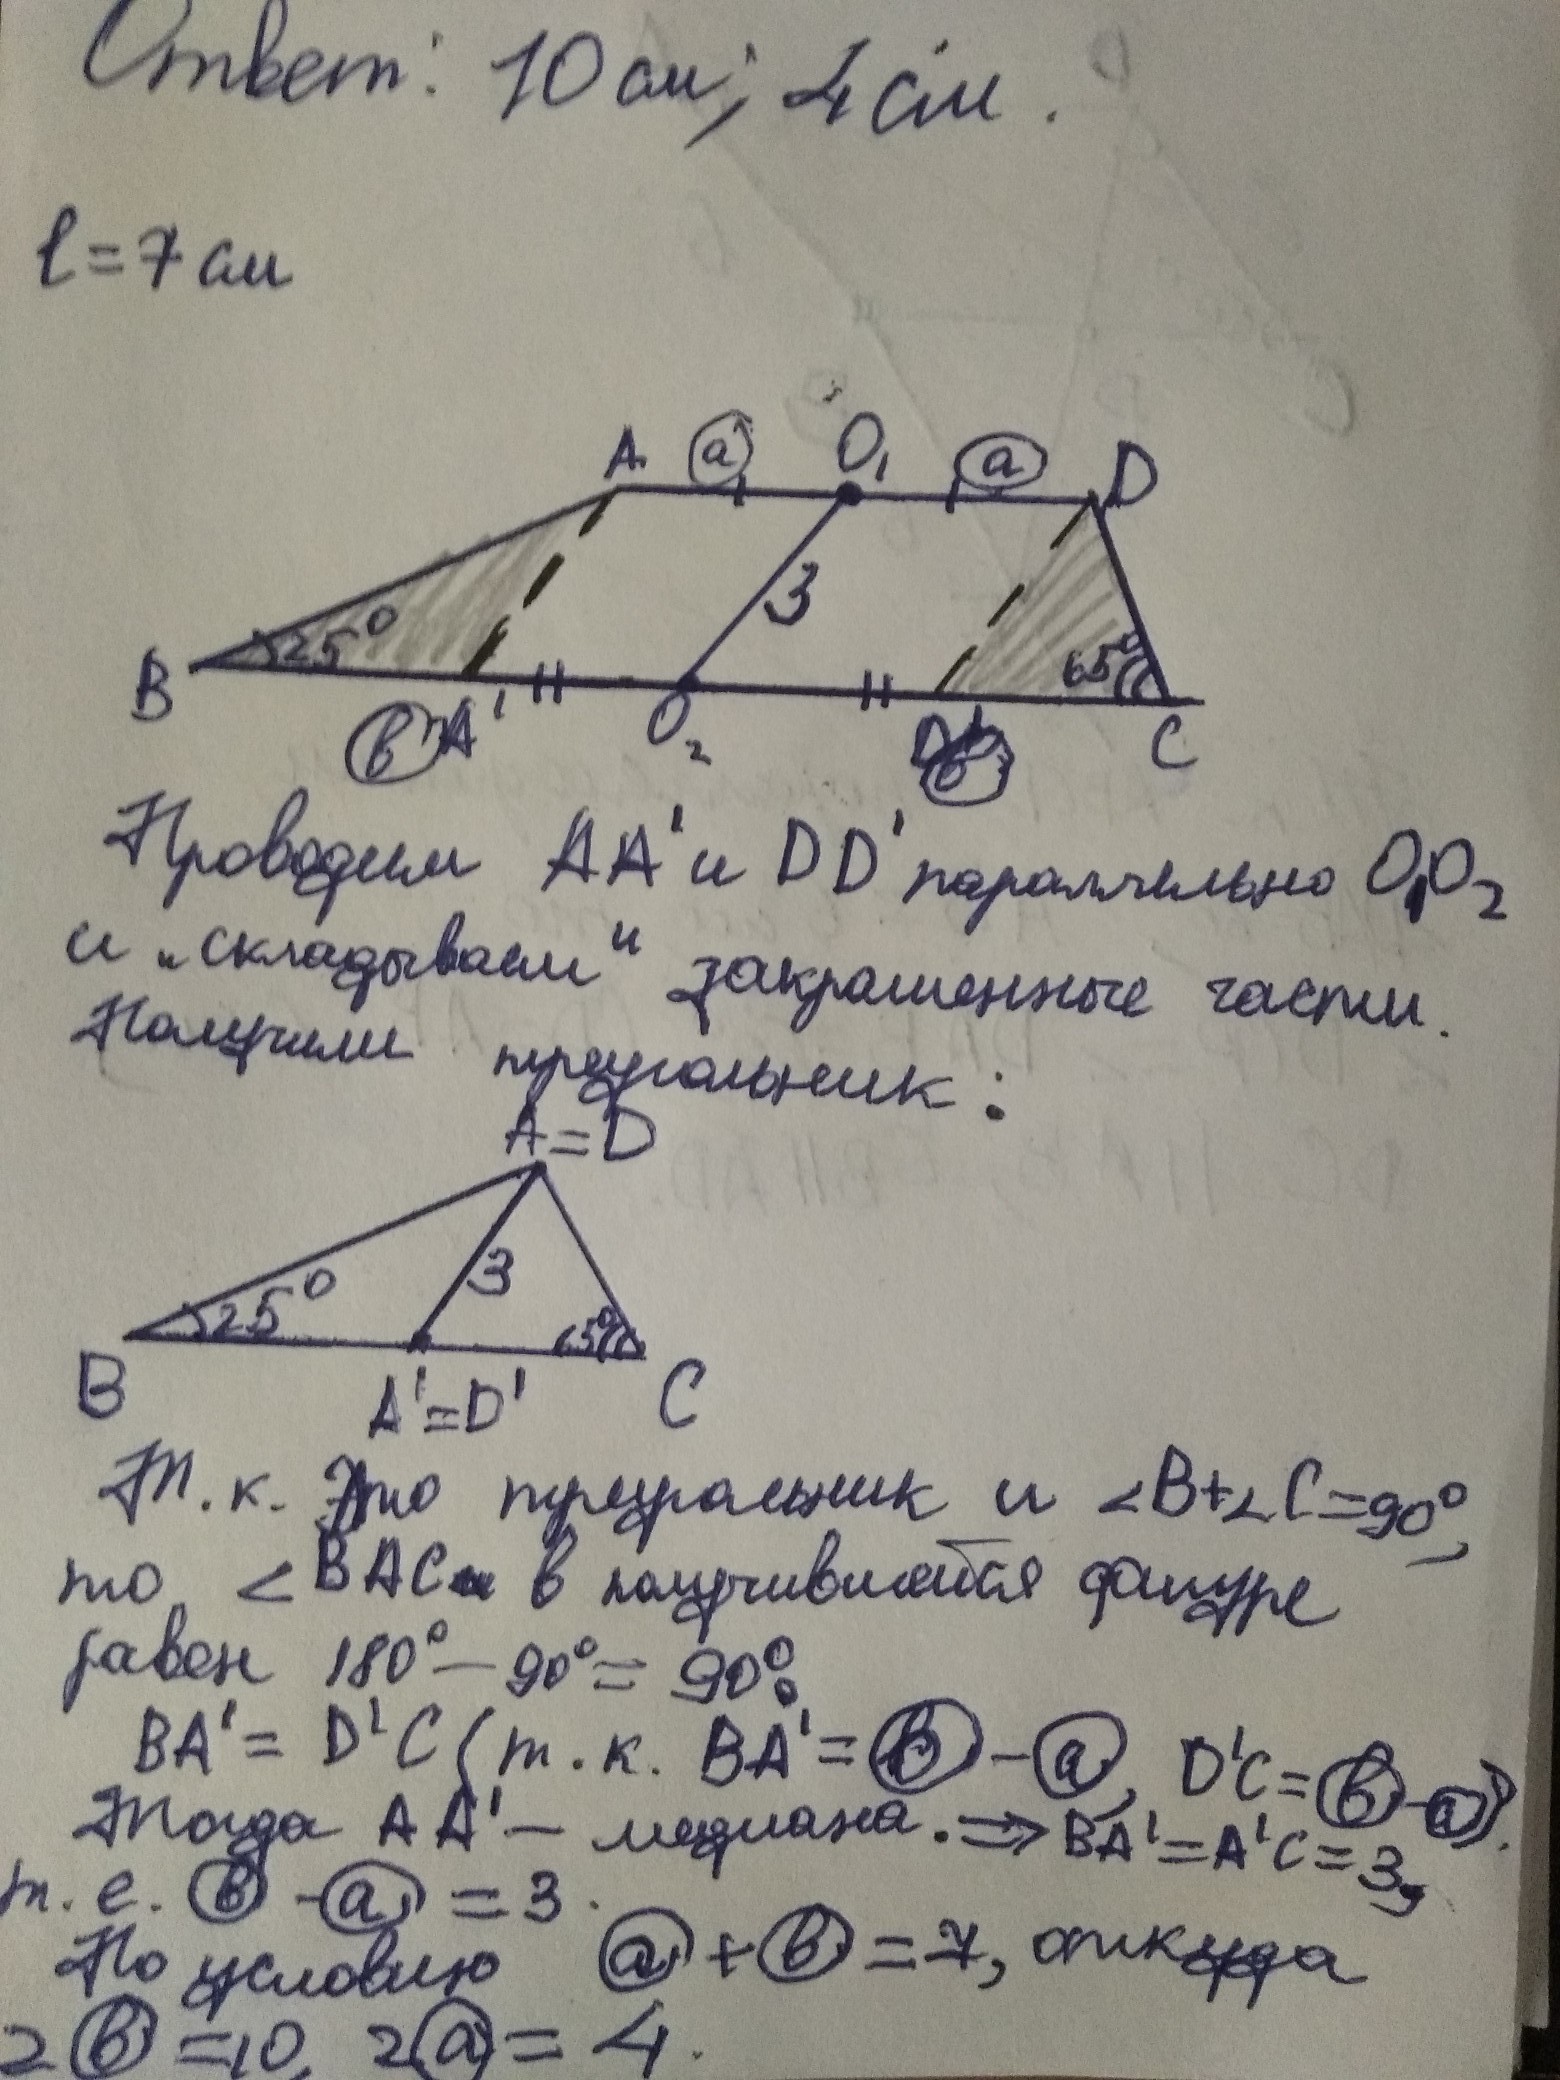 Ответ: 10 см; 4 см.
l=7 см
A a O₁ a D
3
25° 65°
B b A' O₂ D' b C
Проводим AA' и DD' параллельно O₁O₂
и „складываем" закрашенные части.
Получили треугольник:
A=D
3
25° 65°
B A'=D' C
Т.к. это треугольник и ∠B+∠C=90°,
то ∠BAC в получившейся фигуре
равен 180°-90°=90°.
BA'=D'C (т.к. BA'=b-a, D'C=b-a).
Тогда AA' - медиана. ⇒ BA'=A'C=3,
т.е. b-a=3.
По условию a+b=7, откуда
2b=10, 2a=4.